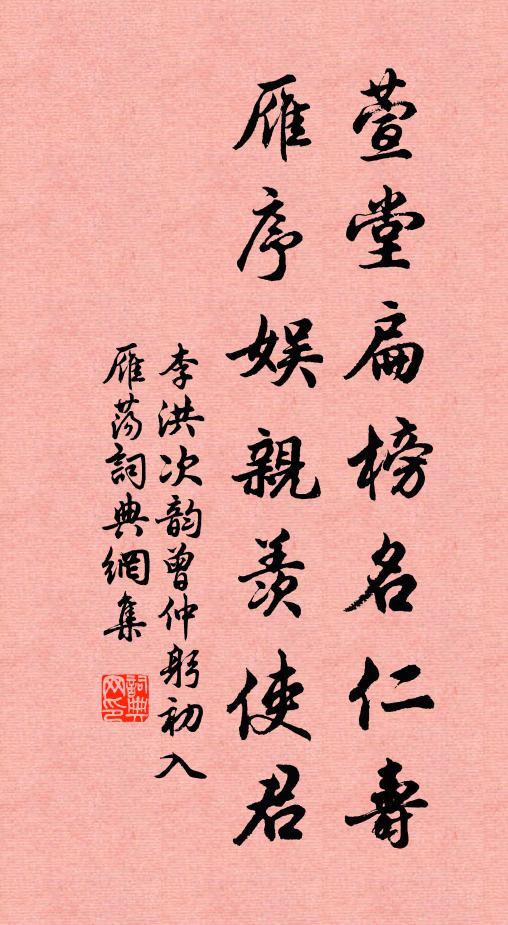 萱堂扁榜名仁壽
雁序娛親羨使君
李洪次韵曾仲躬初入
雁荡詞典網集
詞典網印